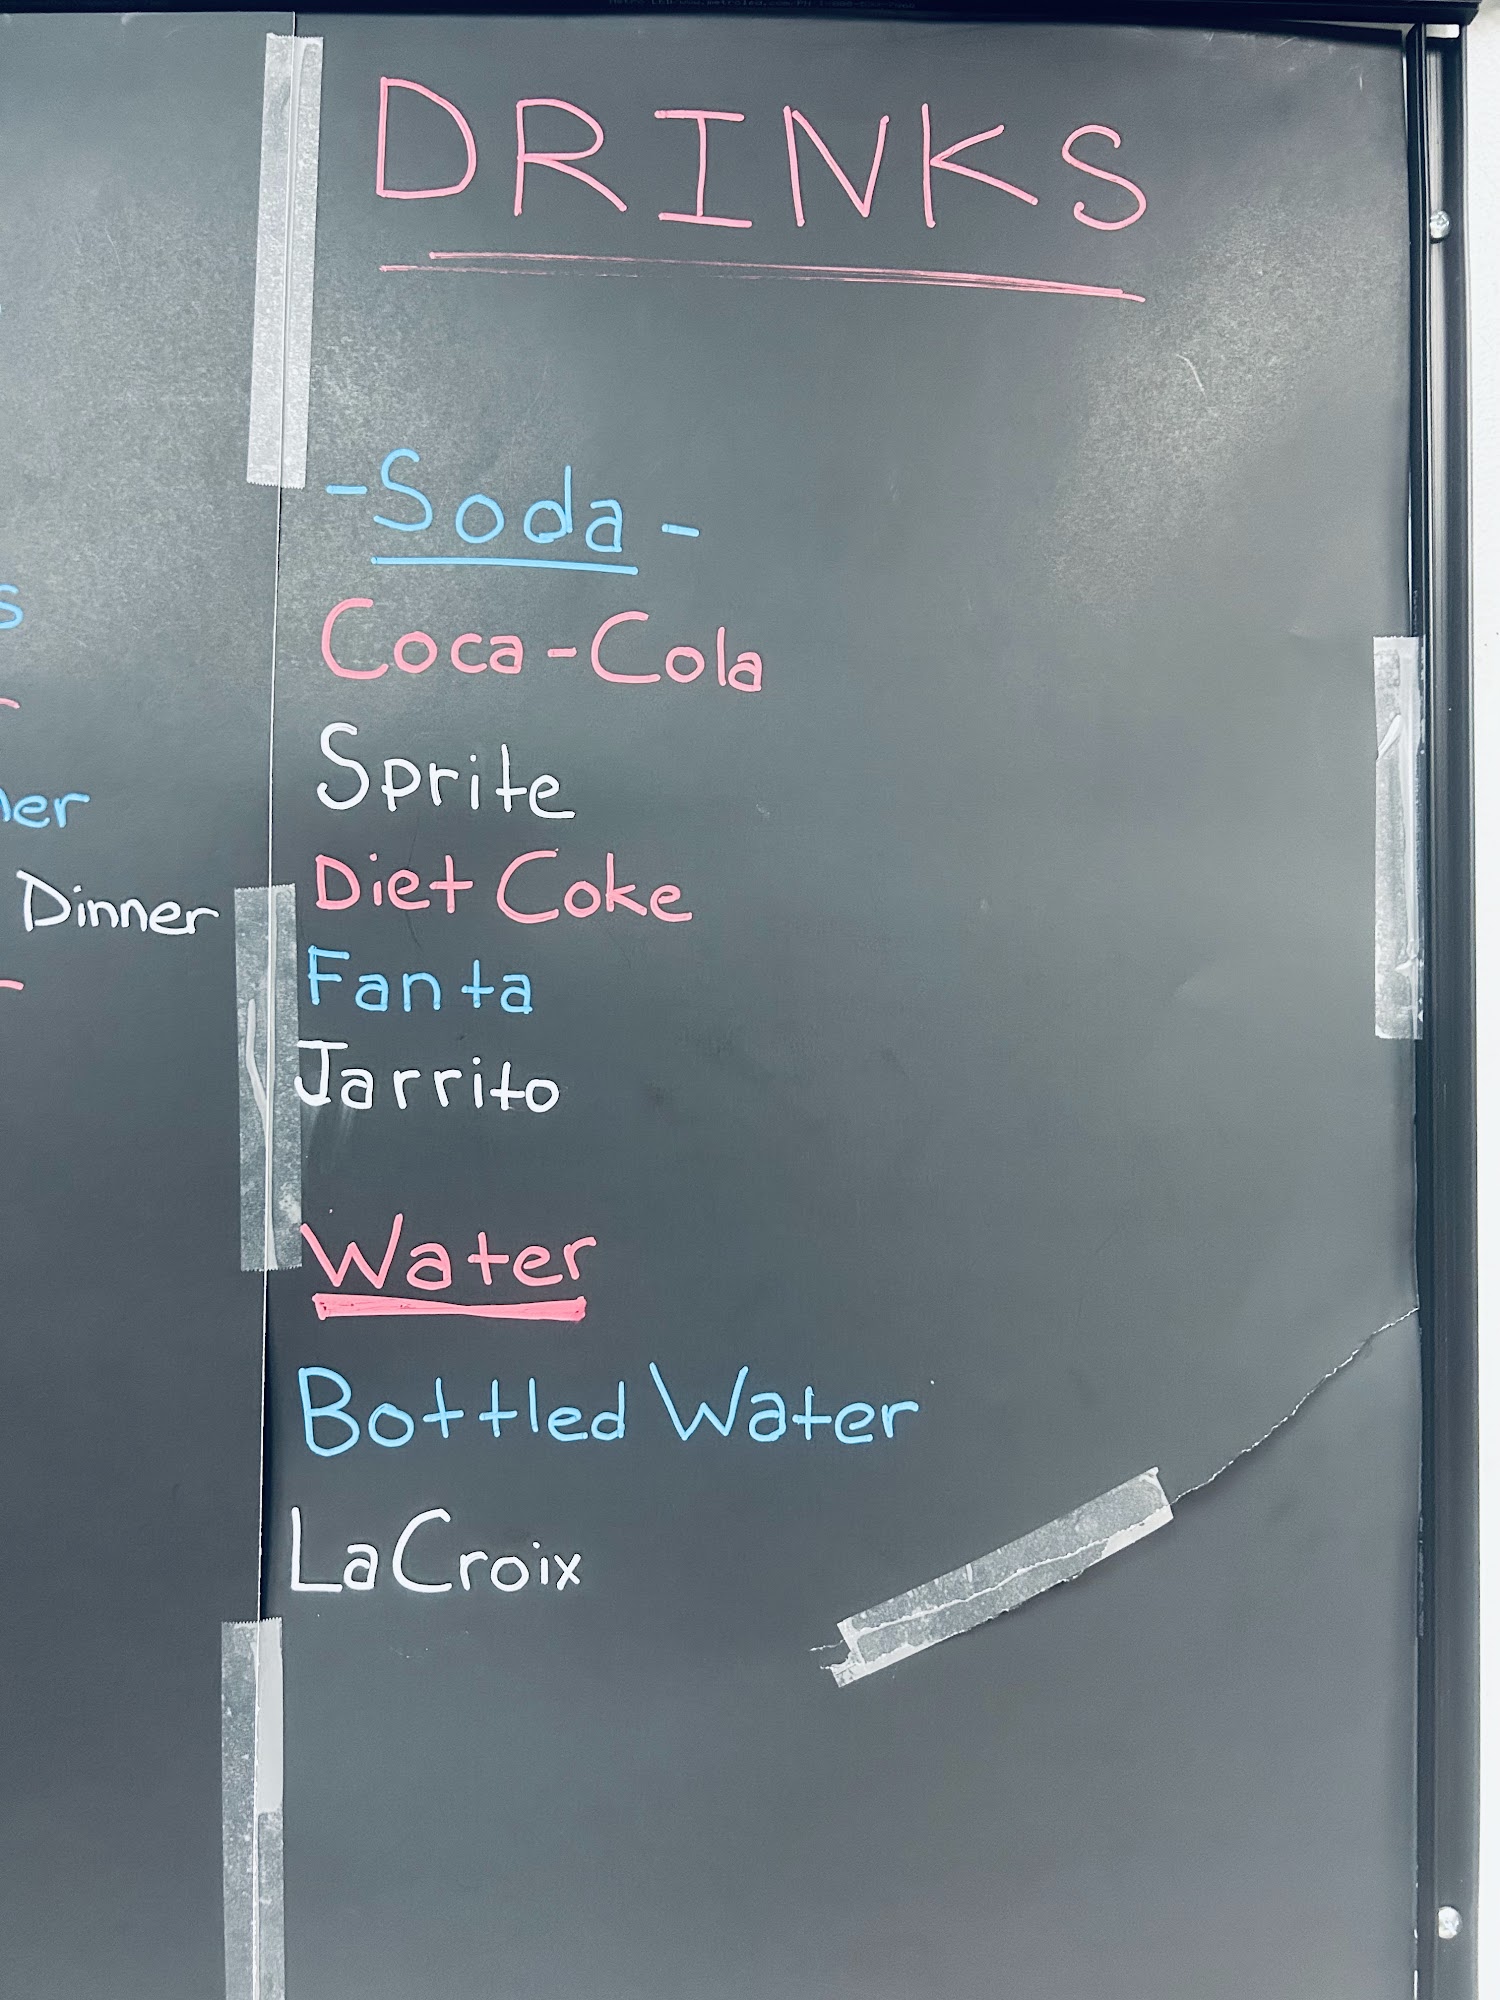 DRINKS
-Soda-
Coca-Cola
Sprite
Diet Coke
Fanta
Jarrito
Water
Bottled Water
LaCroix
Dinner